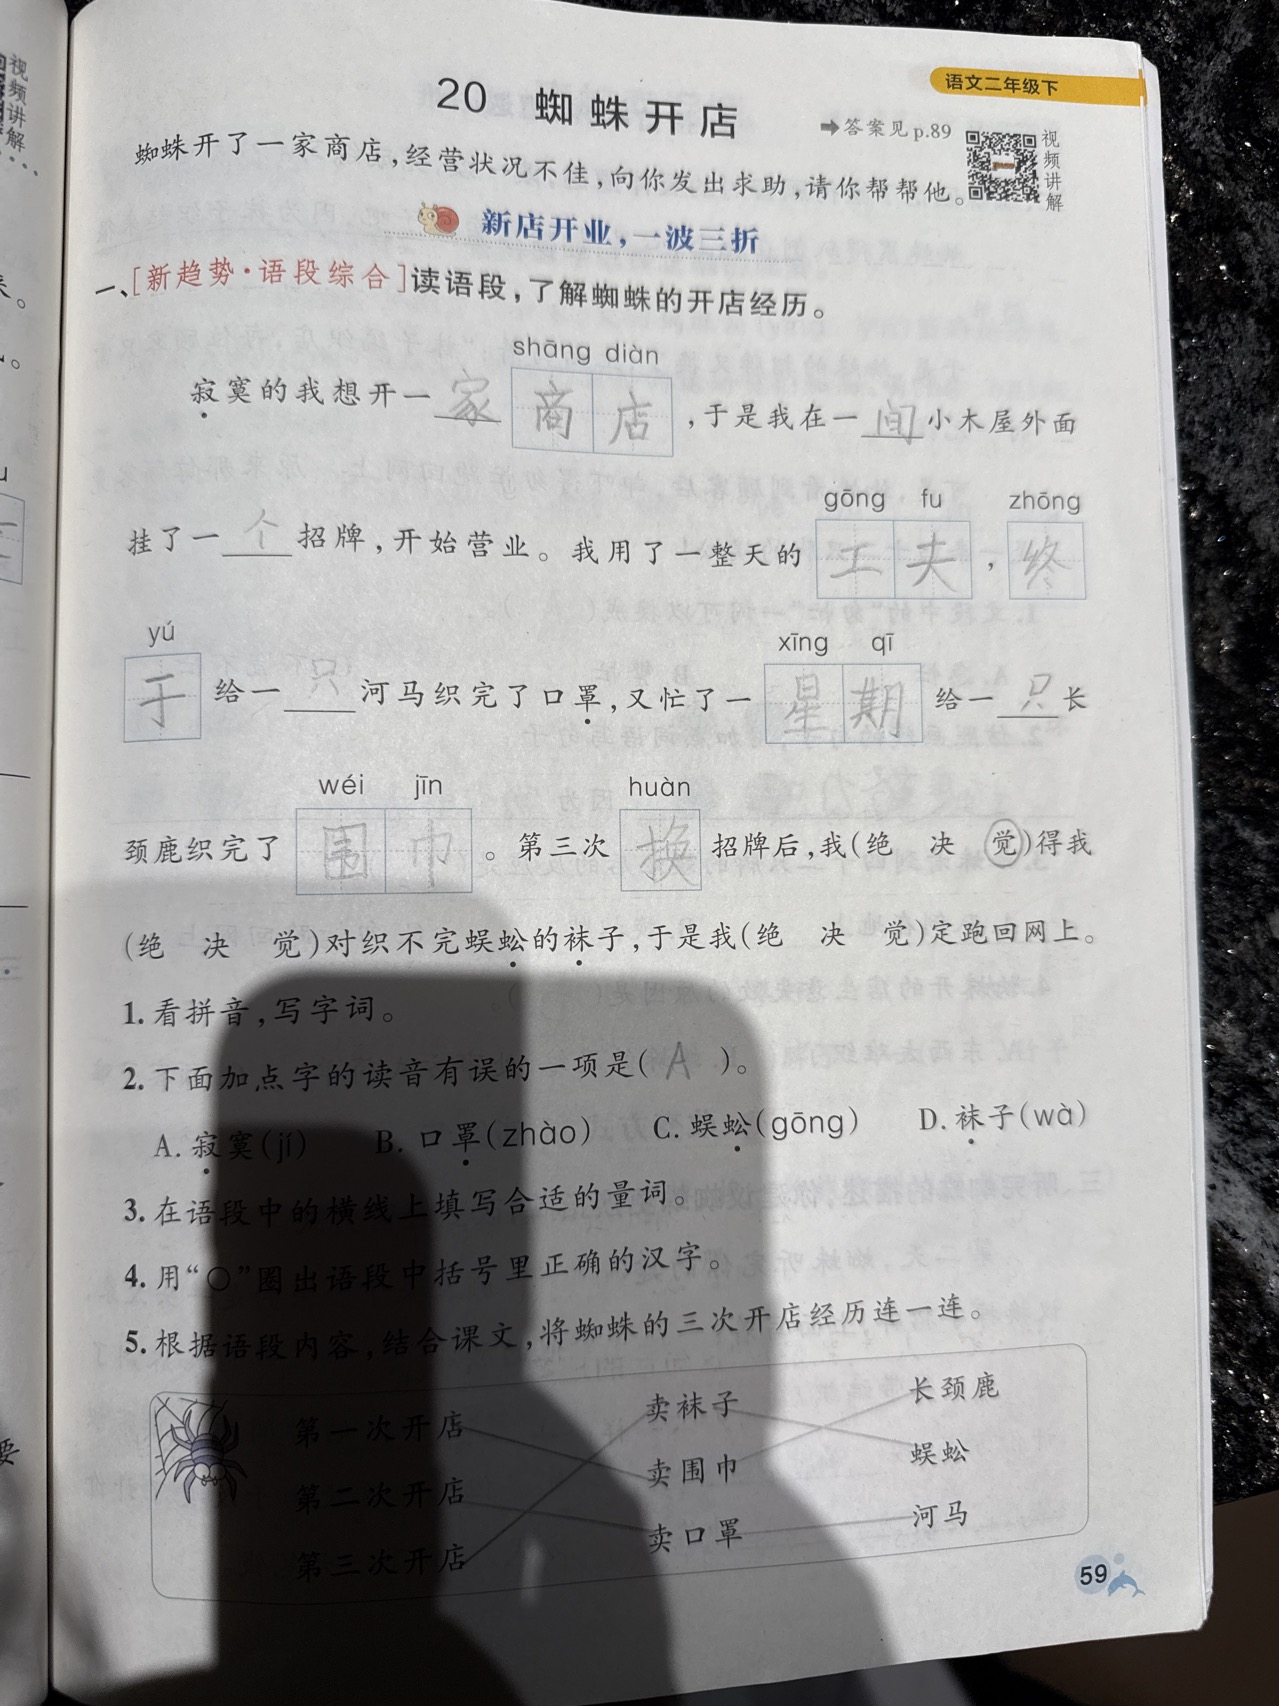 语文二年级下
20 蜘蛛开店
➡答案见p.89
视频讲解
蜘蛛开了一家商店,经营状况不佳,向你发出求助,请你帮帮他。
新店开业,一波三折
一、[新趋势·语段综合]读语段,了解蜘蛛的开店经历。
shāng diàn
寂寞的我想开一家商店,于是我在一间小木屋外面
gōng fu zhōng
挂了一个招牌,开始营业。我用了一整天的工夫,终
yú xīng qī
于给一只河马织完了口罩,又忙了一星期给一只长
wéi jīn huàn
颈鹿织完了围巾。第三次换招牌后,我(绝 决 觉)得我
(绝 决 觉)对织不完蜈蚣的袜子,于是我(绝 决 觉)定跑回网上。
1.看拼音,写字词。
2.下面加点字的读音有误的一项是( A )。
A.寂寞(jí) B.口罩(zhào) C.蜈蚣(gōng) D.袜子(wà)
3.在语段中的横线上填写合适的量词。
4.用“○”圈出语段中括号里正确的汉字。
5.根据语段内容,结合课文,将蜘蛛的三次开店经历连一连。
第一次开店 卖袜子 长颈鹿
第二次开店 卖围巾 蜈蚣
第三次开店 卖口罩 河马
59
视频讲解